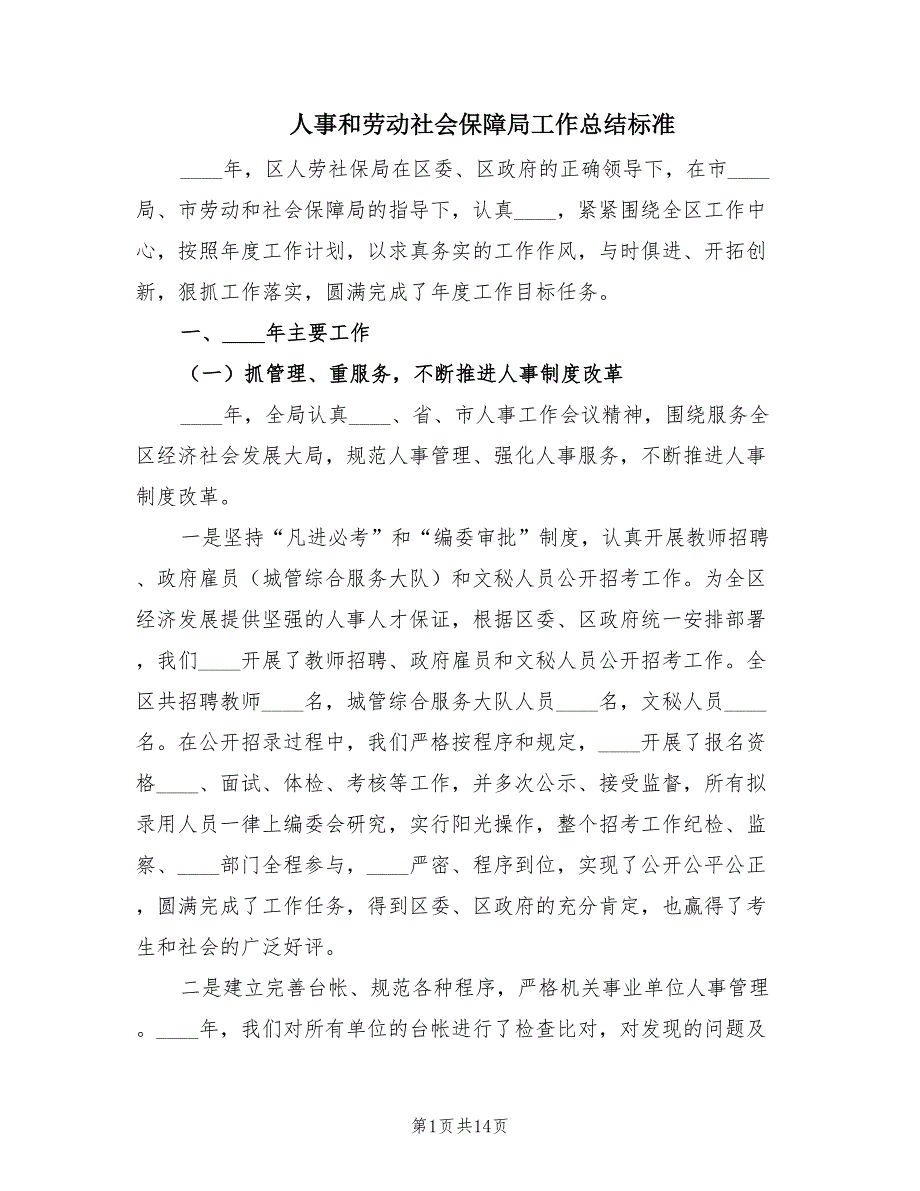 人事和劳动社会保障局工作总结标准
____年，区人劳社保局在区委、区政府的正确领导下，在市____
局、市劳动和社会保障局的指导下，认真____，紧紧围绕全区工作中
心，按照年度工作计划，以求真务实的工作作风，与时俱进、开拓创
新，狠抓工作落实，圆满完成了年度工作目标任务。
一、____年主要工作
（一）抓管理、重服务，不断推进人事制度改革
____年，全局认真____、省、市人事工作会议精神，围绕服务全
区经济社会发展大局，规范人事管理、强化人事服务，不断推进人事
制度改革。
一是坚持“凡进必考”和“编委审批”制度，认真开展教师招聘
、政府雇员（城管综合服务大队）和文秘人员公开招考工作。为全区
经济发展提供坚强的人事人才保证，根据区委、区政府统一安排部署
，我们____开展了教师招聘、政府雇员和文秘人员公开招考工作。全
区共招聘教师____名，城管综合服务大队人员____名，文秘人员____
名。在公开招录过程中，我们严格按程序和规定，____开展了报名资
格____、面试、体检、考核等工作，并多次公示、接受监督，所有拟
录用人员一律上编委会研究，实行阳光操作，整个招考工作纪检、监
察、____部门全程参与，____严密、程序到位，实现了公开公平公正
，圆满完成了工作任务，得到区委、区政府的充分肯定，也赢得了考
生和社会的广泛好评。
二是建立完善台帐、规范各种程序，严格机关事业单位人事管理
。____年，我们对所有单位的台帐进行了检查比对，对发现的问题及
第1页共14页